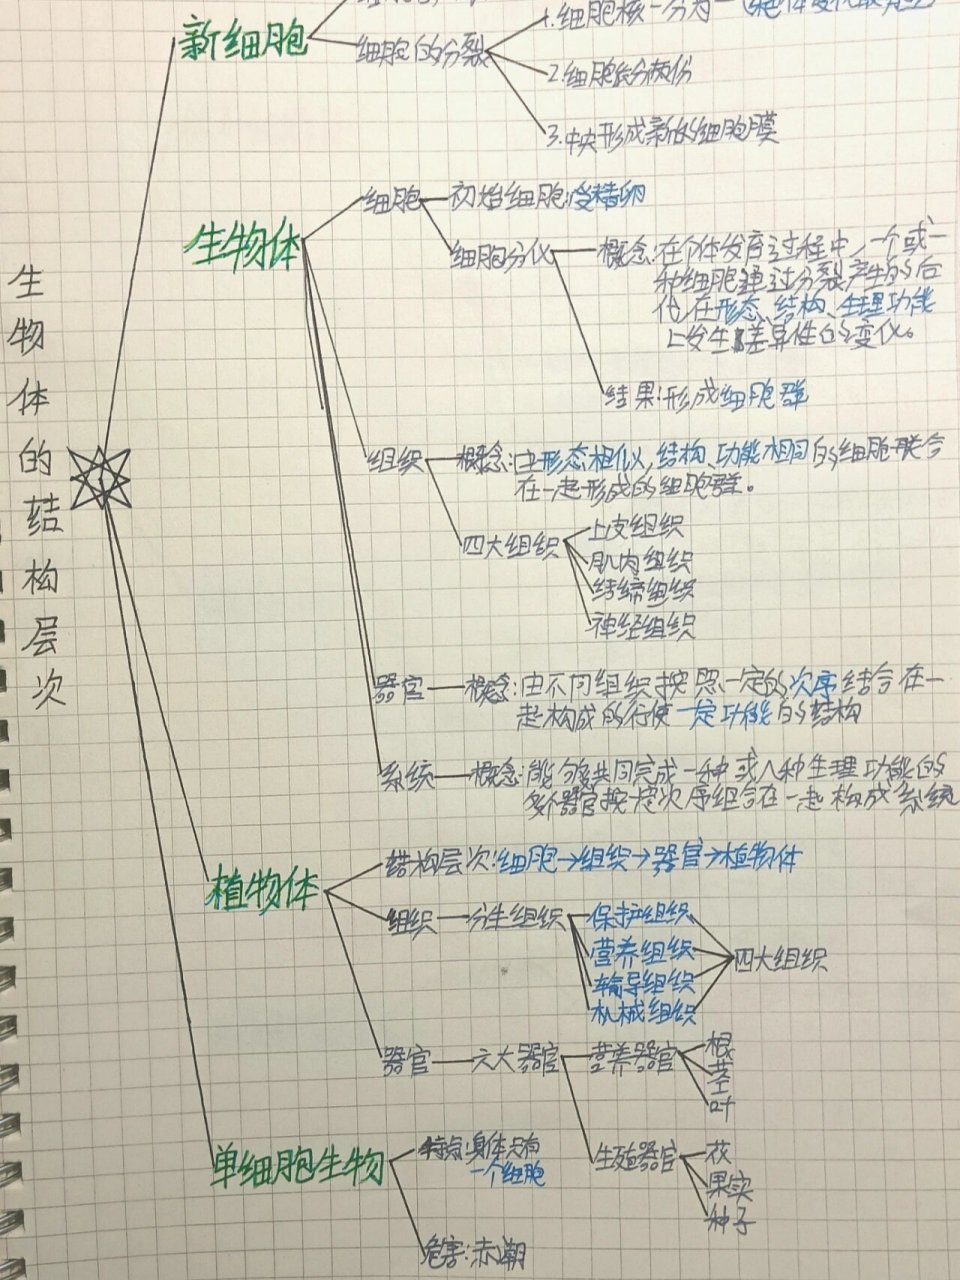 生物体的结构层次
新细胞
细胞的分裂
1.细胞核一分为二
2.细胞质分两份
3.中央形成新的细胞膜
生物体
细胞
初始细胞:受精卵
细胞分化
概念:在个体发育过程中,一个或一
种细胞通过分裂产生的后
代,在形态、结构、生理功能
上发生差异性的变化。
结果:形成细胞群
组织
概念:由形态相似,结构、功能相同的细胞联合
在一起形成的细胞群。
四大组织
上皮组织
肌肉组织
结缔组织
神经组织
器官
概念:由不同组织按照一定的次序结合在一
起构成的行使一定功能的结构
系统
概念:能够共同完成一种或几种生理功能的
多个器官按一定次序组合在一起构成系统
植物体
结构层次:细胞→组织→器官→植物体
组织
分生组织
保护组织
营养组织
输导组织
机械组织
四大组织
器官
六大器官
营养器官
根
茎
叶
生殖器官
花
果实
种子
单细胞生物
特点:身体只有
一个细胞
危害:赤潮